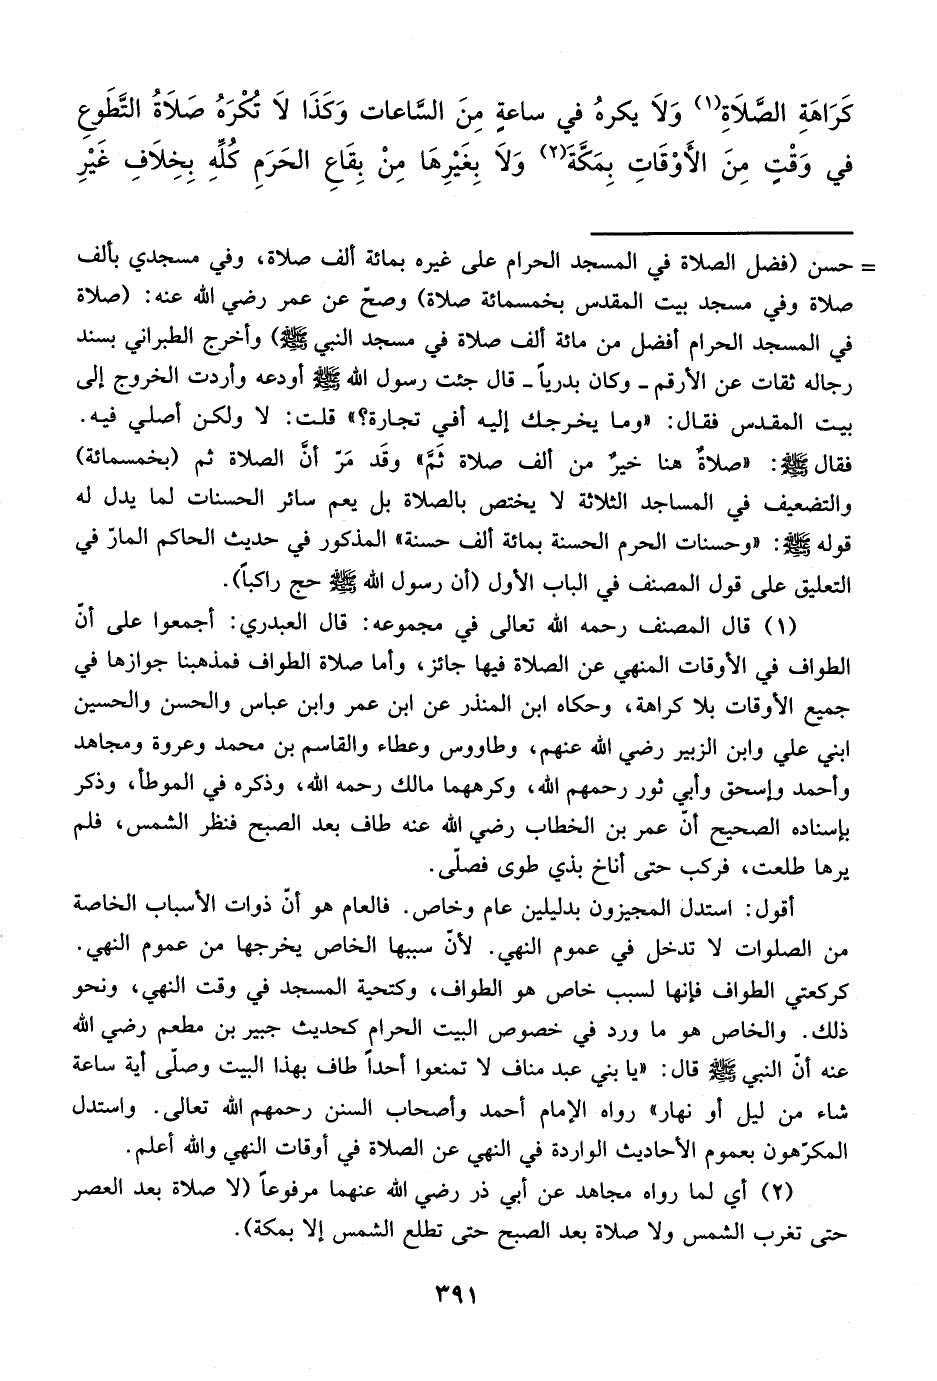 كَرَاهَةِ الصَّلَاةِ(١) وَلَا يكرهُ في ساعةٍ مِنَ السَّاعات وَكَذَا لَا تُكْرَهُ صَلَاةُ التَّطَوعِ
في وَقْتٍ مِنَ الأَوْقَاتِ بِمَكَّةَ(٢) وَلَا بِغَيْرِهَا مِنْ بِقَاعِ الحَرَمِ كُلِّهِ بِخِلَافِ غَيْرِ
= حسن (فضل الصلاة في المسجد الحرام على غيره بمائة ألف صلاة، وفي مسجدي بألف
صلاة وفي مسجد بيت المقدس بخمسمائة صلاة) وصحّ عن عمر رضي الله عنه: (صلاة
في المسجد الحرام أفضل من مائة ألف صلاة في مسجد النبي ﷺ) وأخرج الطبراني بسند
رجاله ثقات عن الأرقم ـ وكان بدرياً ـ قال جئت رسول الله ﷺ أودعه وأردت الخروج إلى
بيت المقدس فقال: «وما يخرجك إليه أفي تجارة؟» قلت: لا ولكن أصلي فيه.
فقال ﷺ: «صلاةٌ هنا خيرٌ من ألف صلاة ثَمَّ» وقد مَرّ أنَّ الصلاة ثم (بخمسمائة)
والتضعيف في المساجد الثلاثة لا يختص بالصلاة بل يعم سائر الحسنات لما يدل له
قوله ﷺ: «وحسنات الحرم الحسنة بمائة ألف حسنة» المذكور في حديث الحاكم المارّ في
التعليق على قول المصنف في الباب الأول (أن رسول الله ﷺ حج راكباً).
(١) قال المصنف رحمه الله تعالى في مجموعه: قال العبدري: أجمعوا على أنّ
الطواف في الأوقات المنهي عن الصلاة فيها جائز، وأما صلاة الطواف فمذهبنا جوازها في
جميع الأوقات بلا كراهة، وحكاه ابن المنذر عن ابن عمر وابن عباس والحسن والحسين
ابني علي وابن الزبير رضي الله عنهم، وطاووس وعطاء والقاسم بن محمد وعروة ومجاهد
وأحمد وإسحق وأبي ثور رحمهم الله، وكرههما مالك رحمه الله، وذكره في الموطأ، وذكر
بإسناده الصحيح أنّ عمر بن الخطاب رضي الله عنه طاف بعد الصبح فنظر الشمس، فلم
يرها طلعت، فركب حتى أناخ بذي طوى فصلّى.
أقول: استدل المجيزون بدليلين عام وخاص. فالعام هو أنّ ذوات الأسباب الخاصة
من الصلوات لا تدخل في عموم النهي. لأنّ سببها الخاص يخرجها من عموم النهي.
كركعتي الطواف فإنها لسبب خاص هو الطواف، وكتحية المسجد في وقت النهي، ونحو
ذلك. والخاص هو ما ورد في خصوص البيت الحرام كحديث جبير بن مطعم رضي الله
عنه أنّ النبي ﷺ قال: «يا بني عبد مناف لا تمنعوا أحداً طاف بهذا البيت وصلّى أية ساعة
شاء من ليل أو نهار» رواه الإمام أحمد وأصحاب السنن رحمهم الله تعالى. واستدل
المكرّهون بعموم الأحاديث الواردة في النهي عن الصلاة في أوقات النهي والله أعلم.
(٢) أي لما رواه مجاهد عن أبي ذر رضي الله عنهما مرفوعاً (لا صلاة بعد العصر
حتى تغرب الشمس ولا صلاة بعد الصبح حتى تطلع الشمس إلا بمكة).
٣٩١